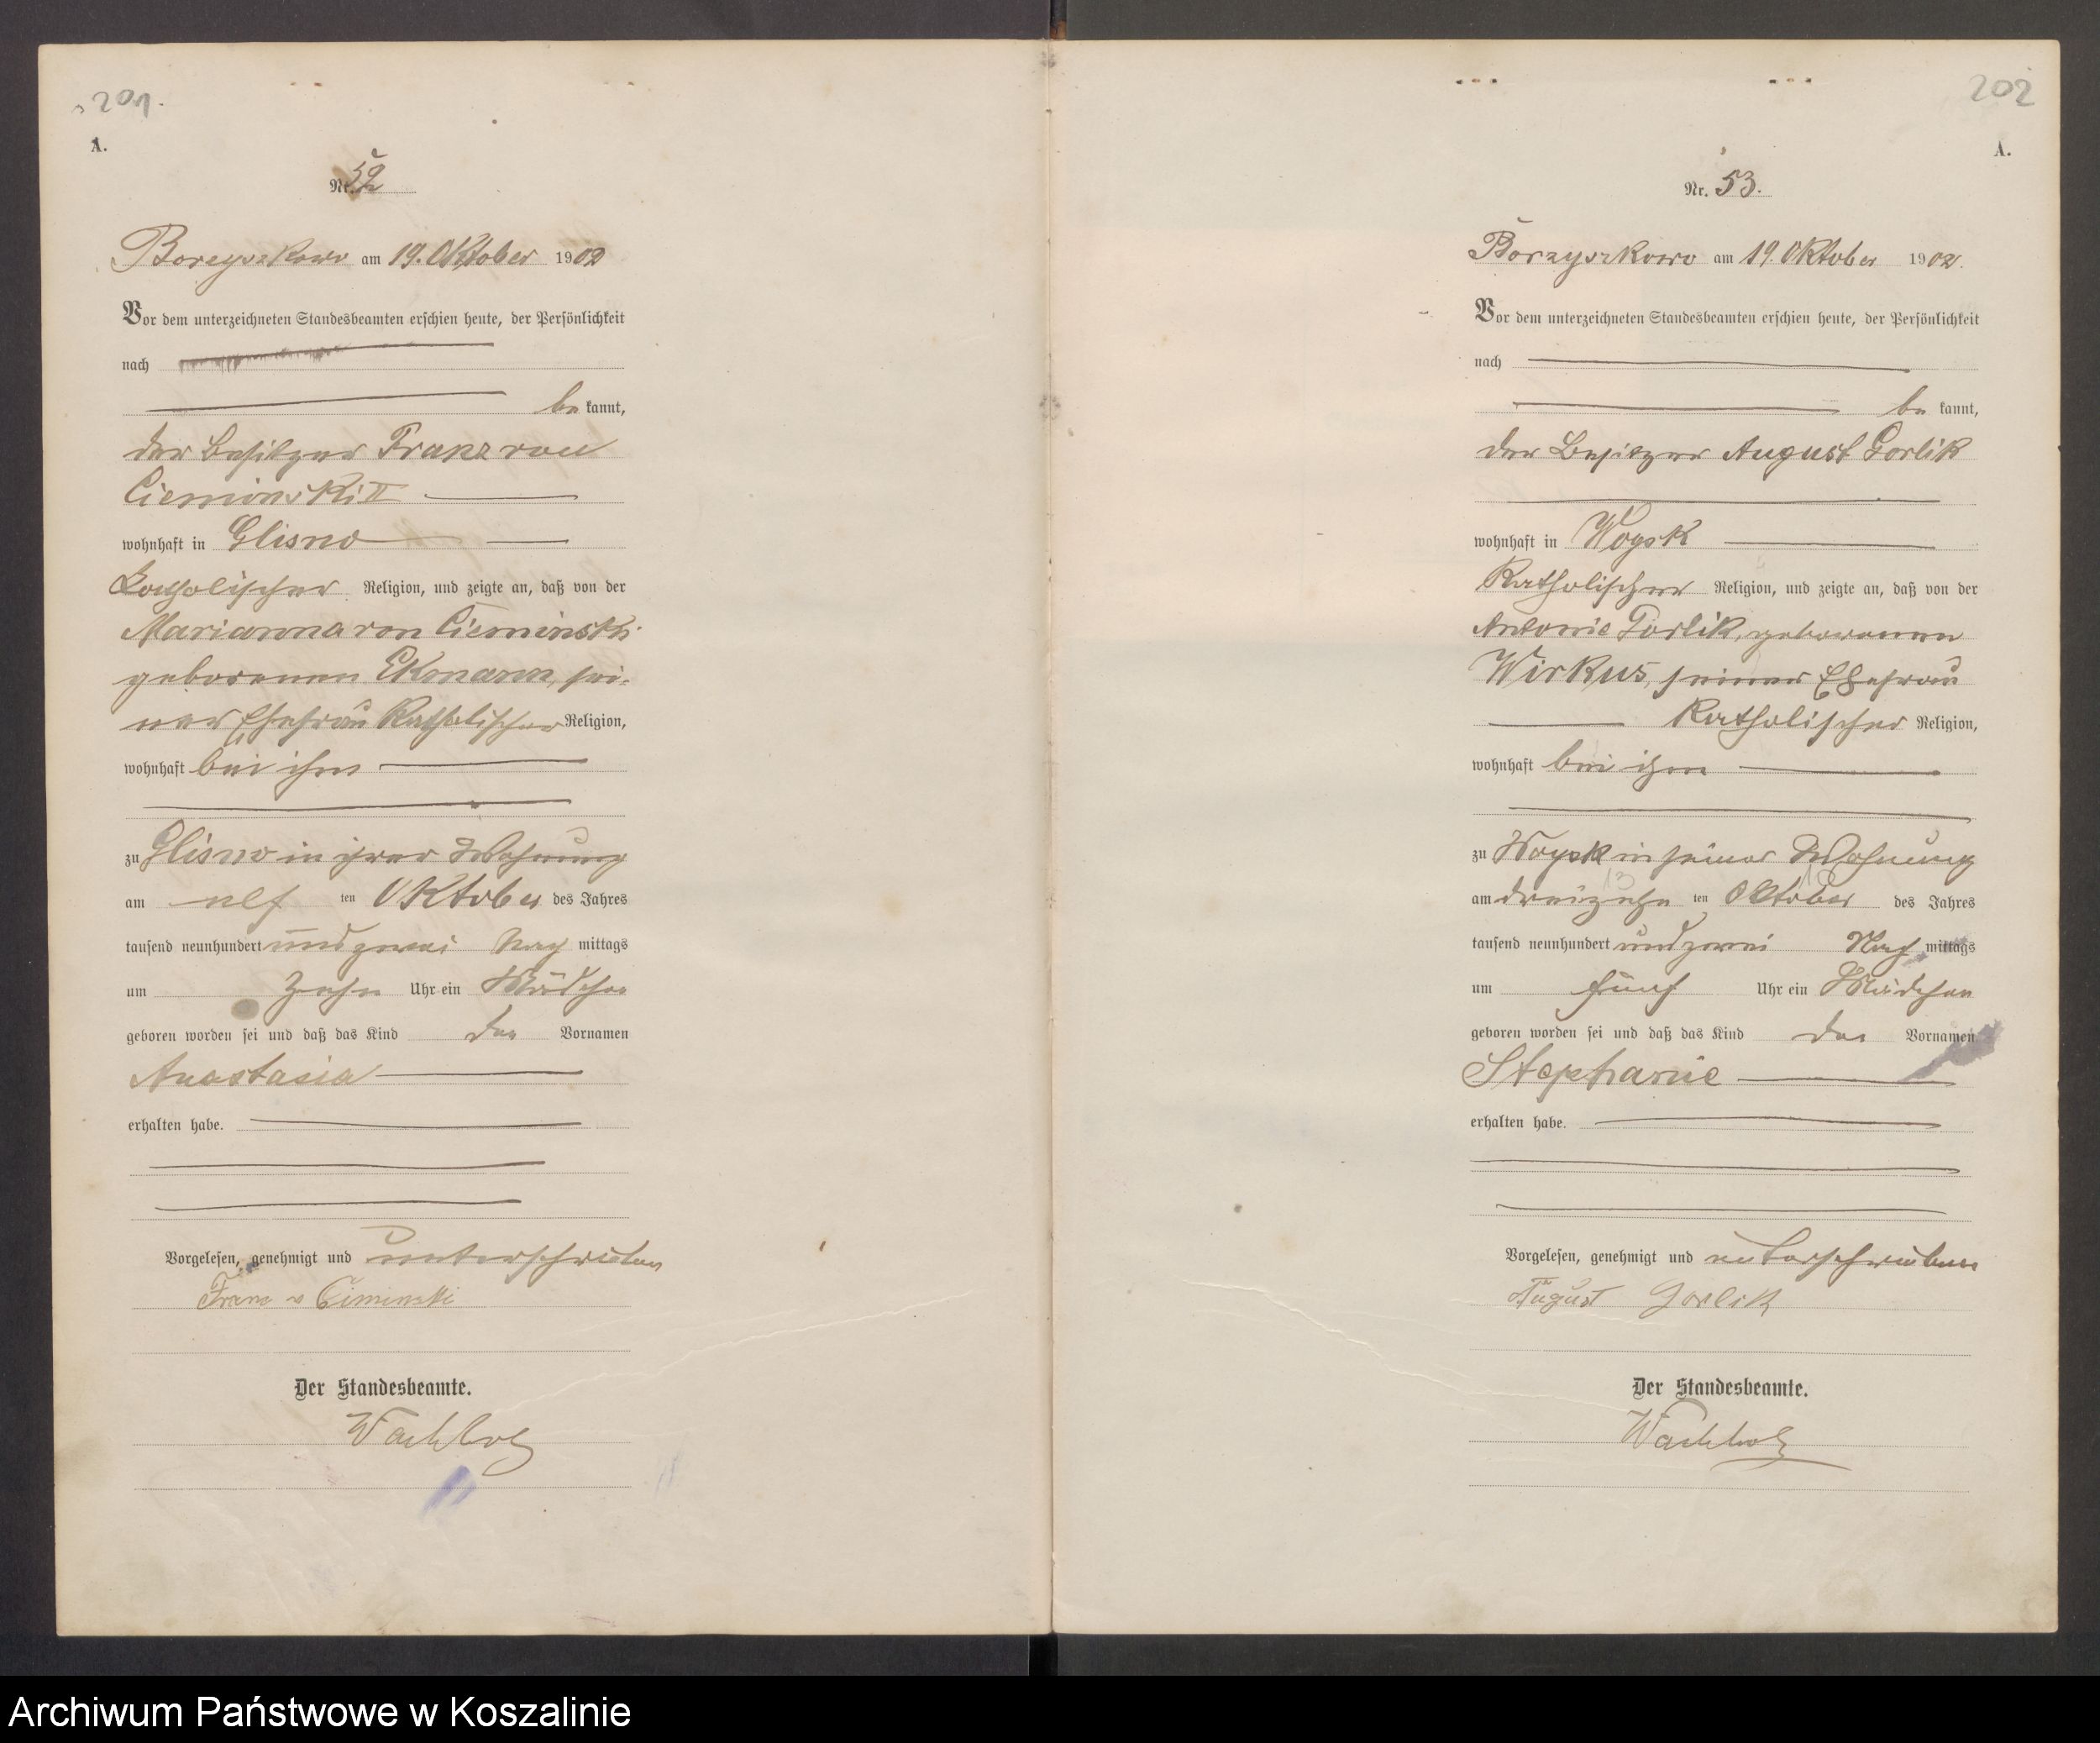 201.
A.
Nr. 52
Borzyszkowo am 19. Oktober 1902
Vor dem unterzeichneten Standesbeamten erschien heute, der Persönlichkeit
nach
be kannt,
der Besitzer Franz von
Cieminski II
wohnhaft in Glisno
Katholischer Religion, und zeigte an, daß von der
Marianna von Cieminski
geborenen Ekmann, sei-
ner Ehefrau Katholischer Religion,
wohnhaft bei ihm
zu Glisno in ihrer Wohnung
am elf ten Oktober des Jahres
tausend neunhundert und zwei Nach mittags
um zehn Uhr ein Mädchen
geboren worden sei und daß das Kind den Vornamen
Anastasia
erhalten habe.
Vorgelesen, genehmigt und unterschrieben
Franz v Ciminski
Der Standesbeamte.
Wachholz
202
A.
Nr. 53.
Borzyszkowo am 19. Oktober 1902.
Vor dem unterzeichneten Standesbeamten erschien heute, der Persönlichkeit
nach
be kannt,
der Besitzer August Gorlik
wohnhaft in Woysk
Katholischer Religion, und zeigte an, daß von der
Antonie Gorlik, geborenen
Wirkus, seiner Ehefrau
Katholischer Religion,
wohnhaft bei ihm
zu Woysk in seiner Wohnung
13 10
am dreizehn ten Oktober des Jahres
tausend neunhundert und zwei Nach mittags
um fünf Uhr ein Mädchen
geboren worden sei und daß das Kind den Vornamen
Stephanie
erhalten habe.
Vorgelesen, genehmigt und unterschrieben
August Gorlik
Der Standesbeamte.
Wachholz
Archiwum Państwowe w Koszalinie